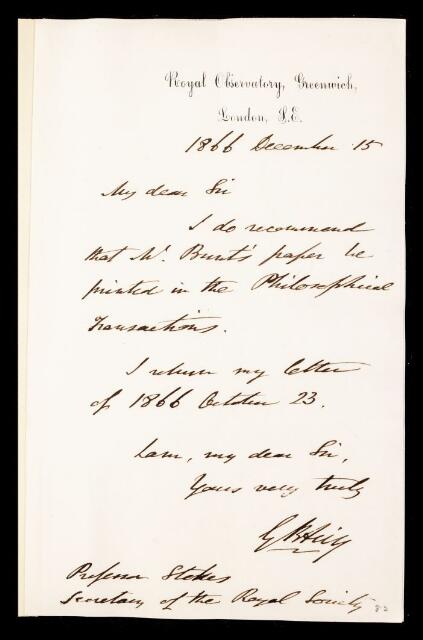 Royal Observatory, Greenwich,
London, S.E.
1866 December 15
My dear Sir
I do recommend
that Mr. Bunt's paper be
printed in the Philosophical
Transactions.
I return my letter
of 1866 October 23.
I am, my dear Sir,
Yours very truly
G B Airy
Professor Stokes
Secretary of the Royal Society